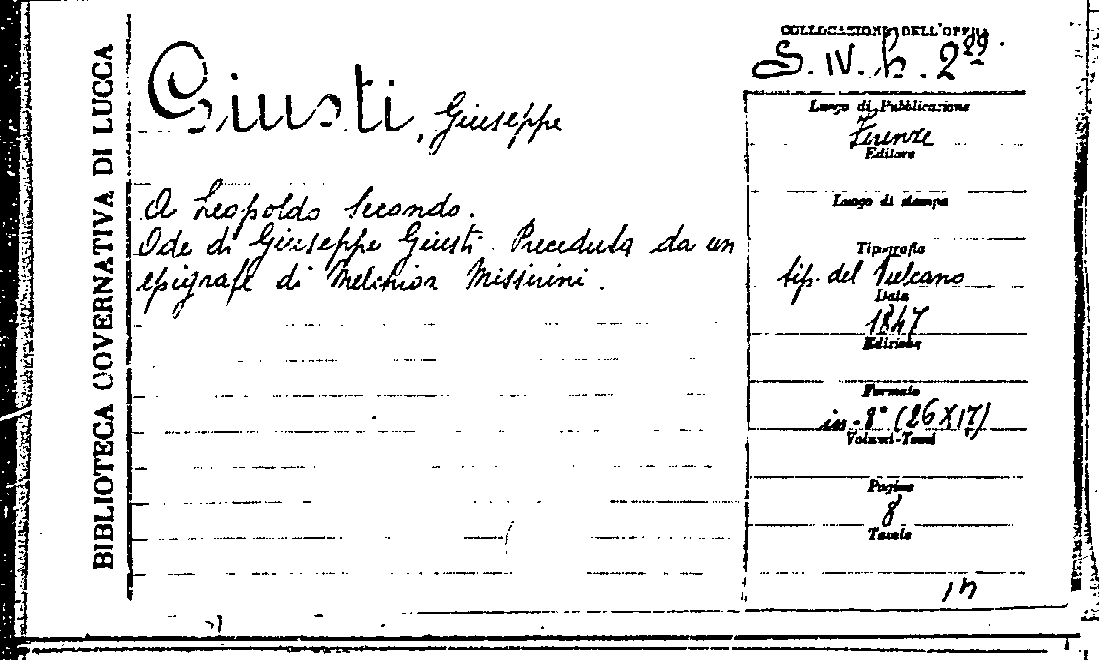 BIBLIOTECA GOVERNATIVA DI LUCCA
Giusti, Giuseppe
A Leopoldo Secondo.
Ode di Giuseppe Giusti. Preceduta da un
epigrafe di Melchior Missirini.
COLLOCAZIONE DELL'OPERA
S. IV. h. 2²⁹.
Luogo di Pubblicazione
Firenze
Editore
Luogo di stampa
Tipografia
tip. del Vulcano
Data
1847
Edizione
Formato
in-8° (26X17)
Volumi-Tomi
Pagine
8
Tavole